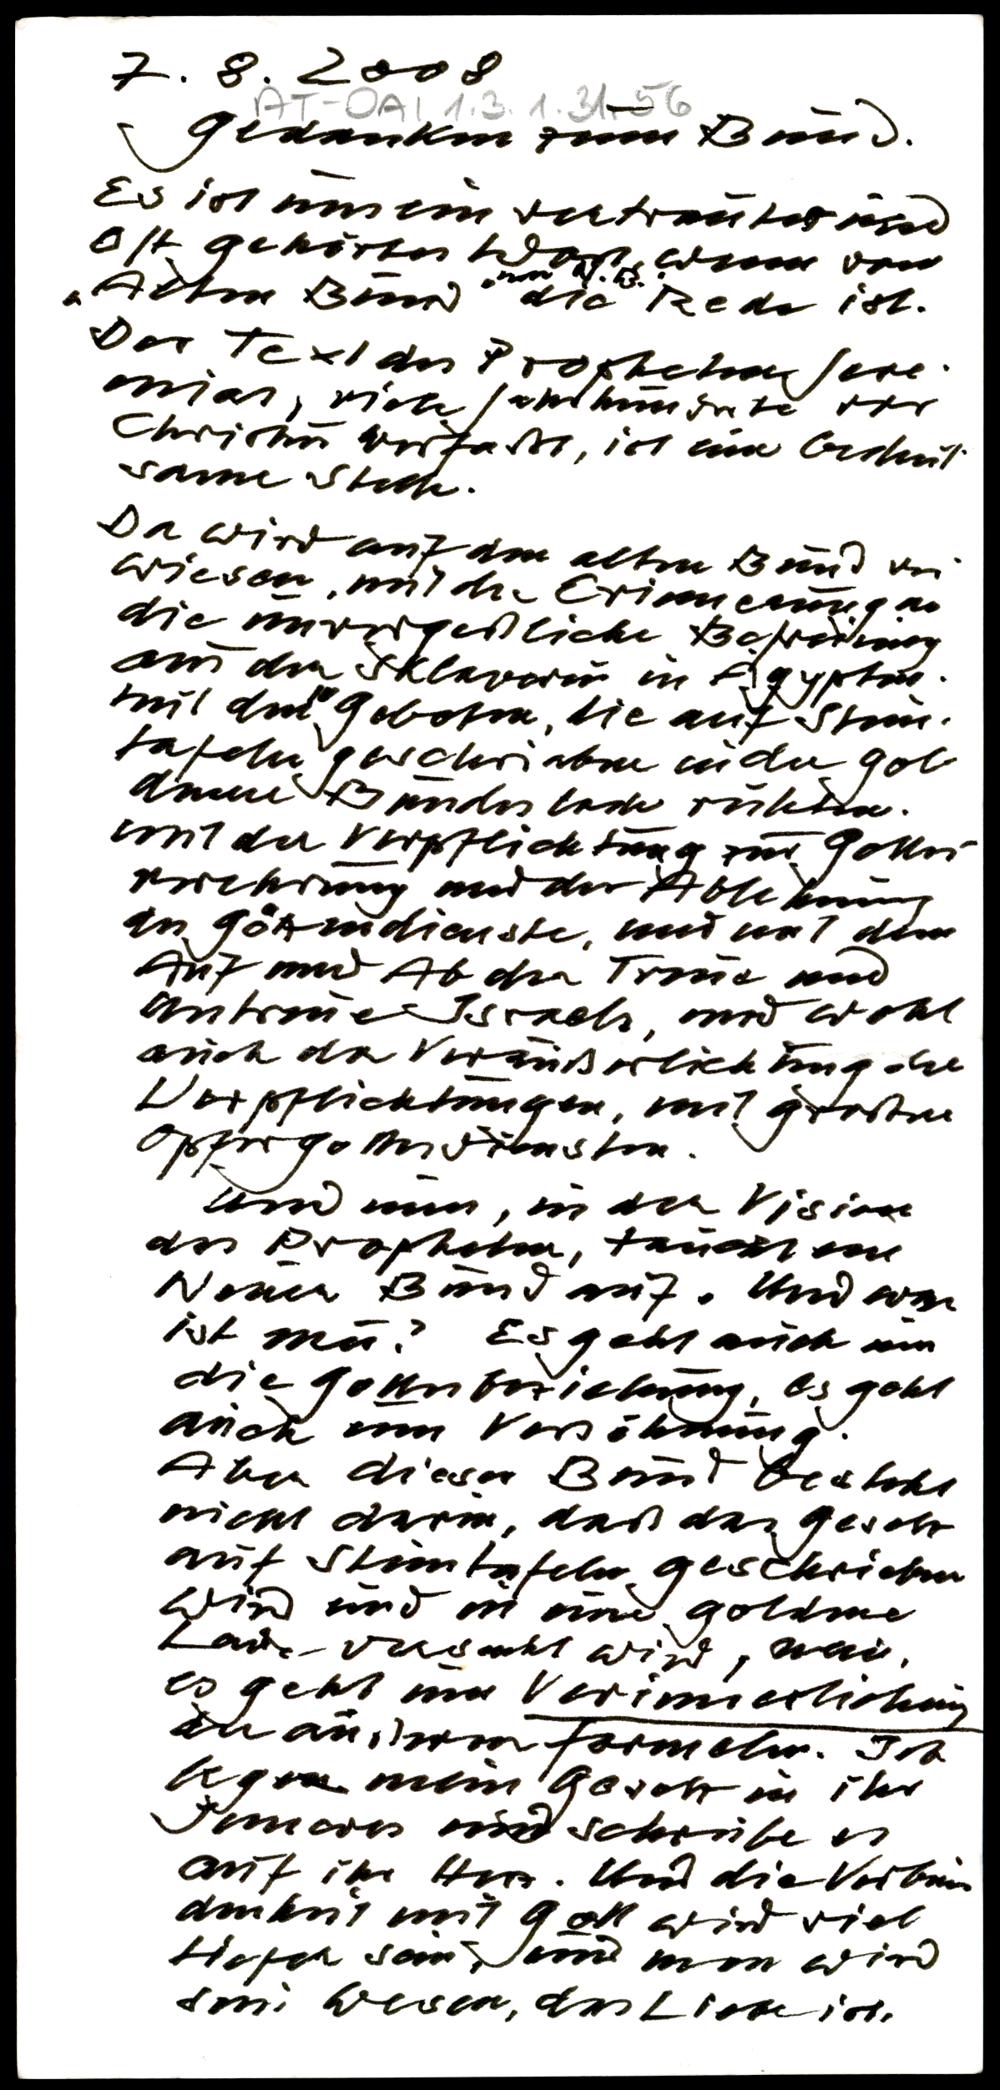 7. 8. 2008
AT-OAI 1.3.1.31.56
Gedanken zum Bund.
Es ist uns ein vertrautes und
oft gehörtes Wort, wenn vom
"Alten Bund" und N.B. die Rede ist.
Der Text des Propheten Jere-
mias, viele Jahrhunderte vor
Christus verfasst, ist eine bedeut-
same Stelle.
Da wird auf den alten Bund ver-
wiesen, mit der Erinnerung an
die unvergeßliche Befreiung
aus der Sklaverei in Ägypten.
mit den Geboten, die auf Stein-
tafeln geschrieben in der gol-
denen Bundeslade ruhten.
mit der Verpflichtung zur Gottes
verehrung und der Ablehnung
der Götzendienste, und mit dem
Auf und Ab der Treue und
Untreue Israels, und wohl
auch der Veräußerlichung der
Verpflichtungen, mit großen
Opfergottesdiensten.
Und nun, in der Vision
des Propheten, taucht ein
Neuer Bund auf. Und was
ist neu? Es geht auch um
die Gottesbeziehung, es geht
auch um Versöhnung.
Aber dieser Bund besteht
nicht darin, daß das Gesetz
auf Steintafeln geschrieben
wird und in eine goldene
Lade versenkt wird, nein,
es geht um Verinnerlichung
der äußeren Formeln. Ich
lege mein Gesetz in ihr
Inneres und schreibe es
auf ihr Herz. Und die Verbun
denheit mit Gott wird viel
tiefer sein, und man wird
sein Wesen, das Liebe ist,